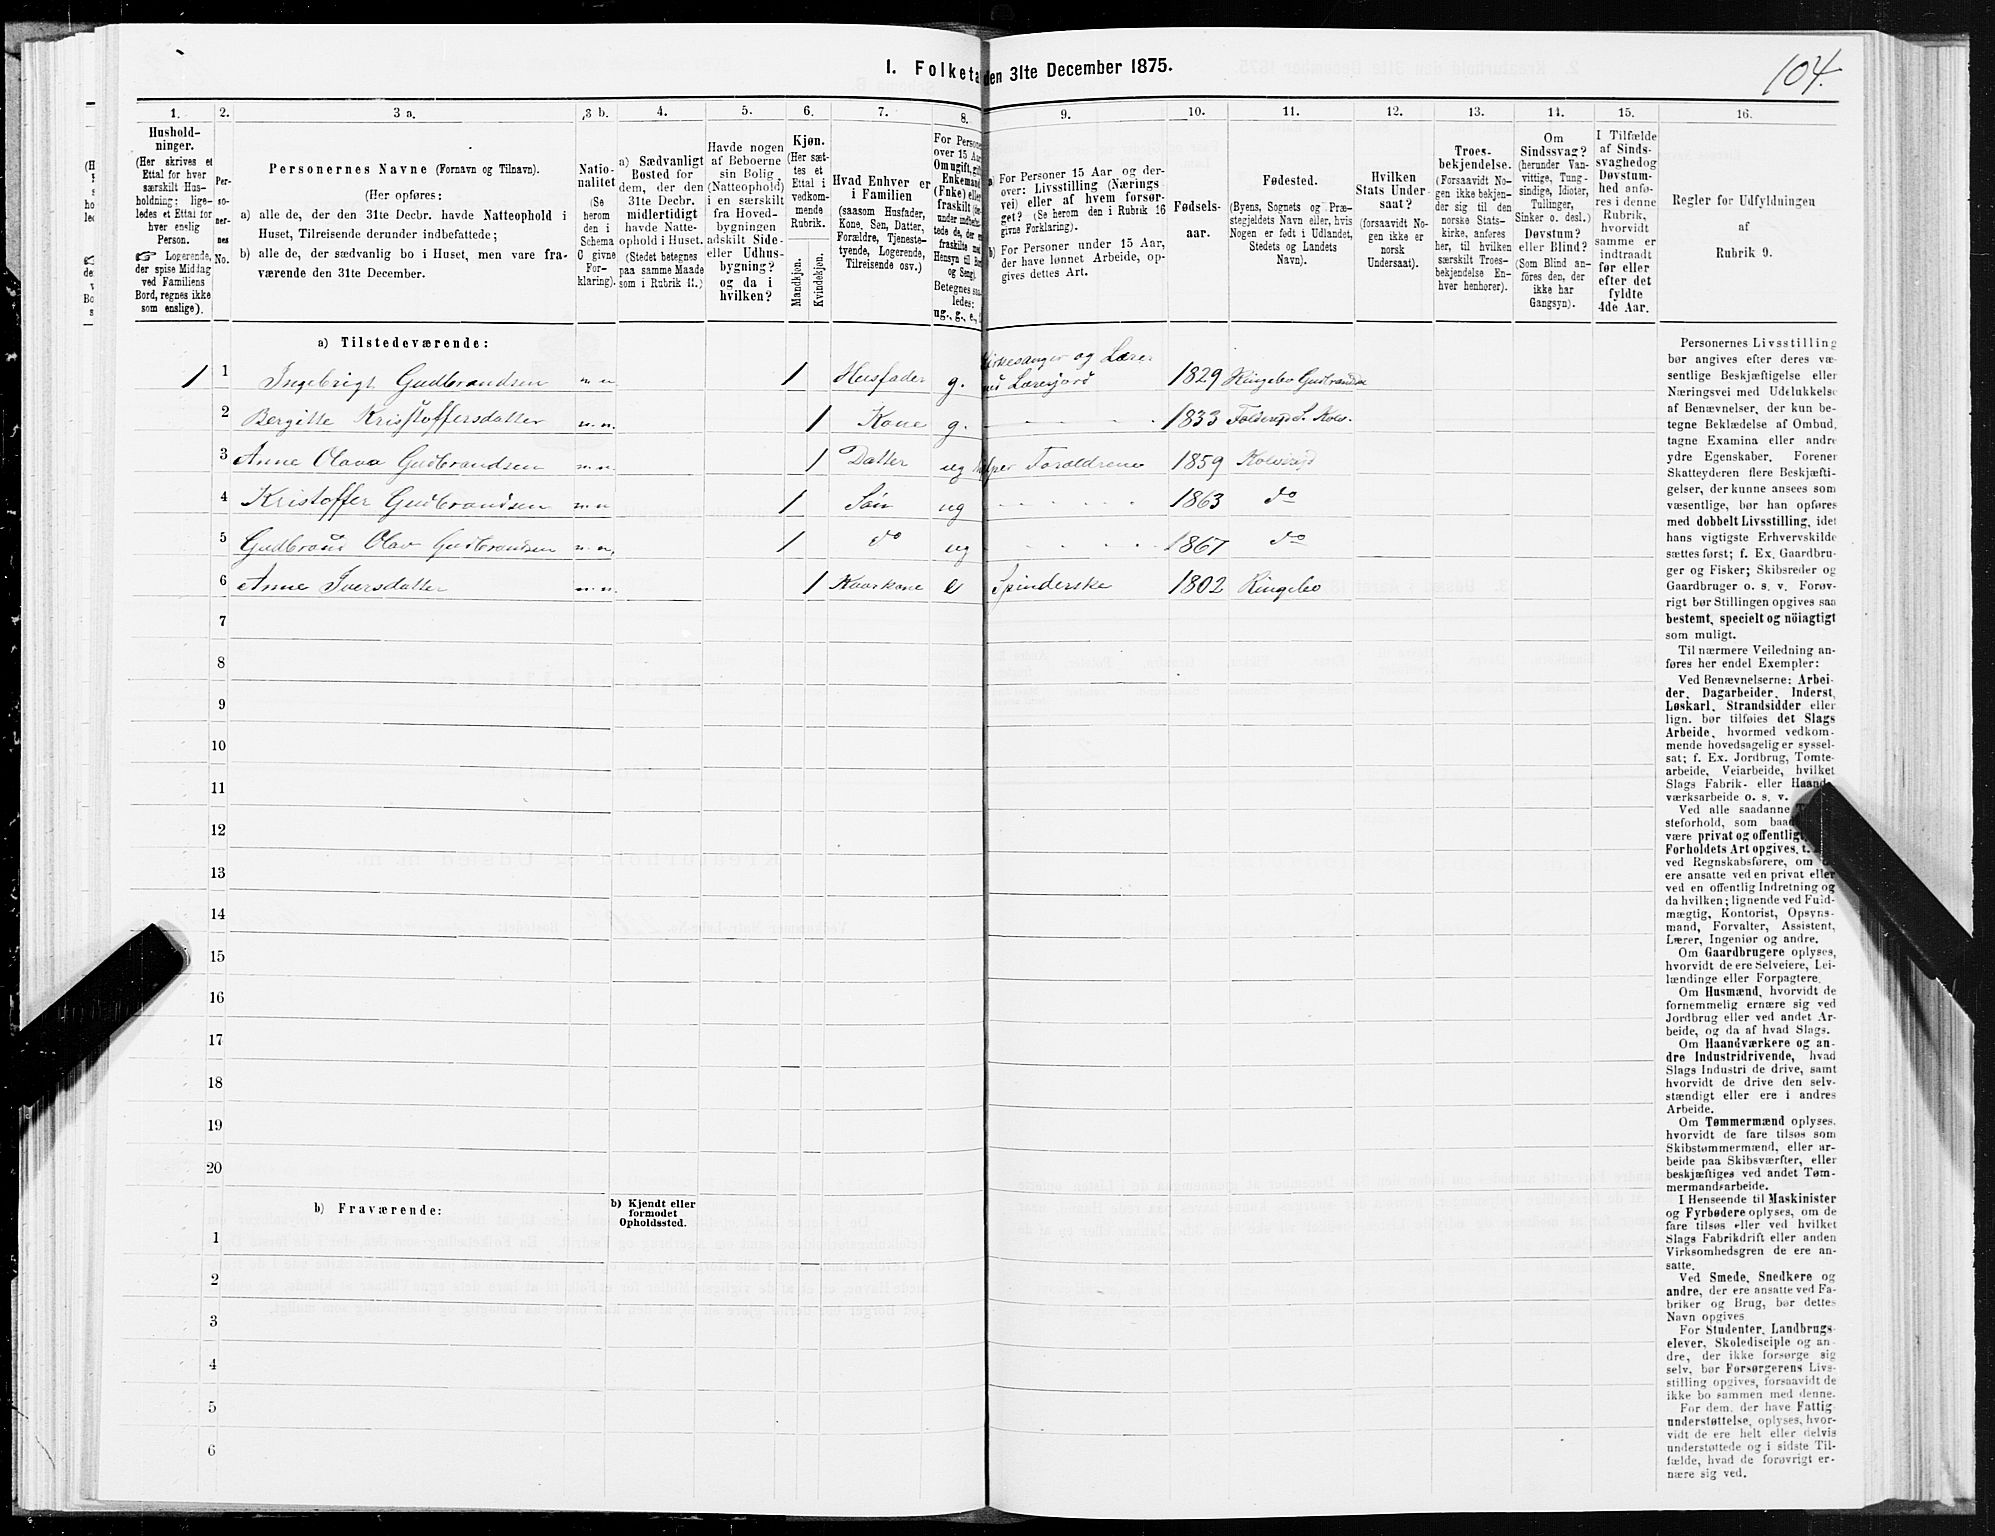 104.
1. Folketa den 31te December 1875.
1. 2. 3 a. 3 b. 4. 5. 6. 7. 8. 9. 10. 11. 12. 13. 14. 15. 16.
Hushold-
ninger.
(Her skrives et
Ettal for hver
særskilt Hus-
holdning; lige-
ledes et Ettal for
hver enslig
Person.
☞ Logerende,
der spise Middag
ved Familiens
Bord, regnes ikke
som enslige).
Per-
so-
ner-
nes
No.
Personernes Navne (Fornavn og Tilnavn).
(Her opføres:
a) alle de, der den 31te Decbr. havde Natteophold i
Huset, Tilreisende derunder indbefattede;
b) alle de, der sædvanlig bo i Huset, men vare fra-
værende den 31te December.
Natio-
nalitet
(Se
herom
den i
Schema
C givne
For-
klaring).
a) Sædvanligt
Bosted for
dem, der den
31te Decbr.
midlertidigt
havde Natte-
ophold i Huset.
(Stedet betegnes
paa samme Maade
som i Rubrik 11.)
Havde nogen
af Beboerne
sin Bolig
(Natteophold)
i en særskilt
fra Hoved-
bygningen
adskilt Side-
eller Udhus-
bygning?
og da i
hvilken?
Kjøn.
(Her sæt-
tes et
Ettal i
vedkom-
mende
Rubrik.
Mandkjøn.
Kvindekjøn.
Hvad Enhver er
i Familien
(saasom Husfader,
Kone, Søn, Datter,
Forældre, Tjeneste-
tyende, Logerende,
Tilreisende osv.)
For Persone
over 15 Aa
Om ugift, gif
Enkemand
(Enke) elle
fraskilt (de
ledes:
ug., g., e.,
a) For Personer 15 Aar og der-
over: Livsstilling (Nærings
vei) eller af hvem forsør-
get? (Se herom den i Rubrik 16
givne Forklaring).
b) For Personer under 15 Aar,
der have lønnet Arbeide, op-
gives dettes Art.
Fødsels-
aar.
Fødested.
(Byens, Sognets og Præ-
stegjeldets Navn eller, hvis
Nogen er født i Udlandet,
Stedets og Landets
Navn).
Hvilken
Stats Under-
saat?
(forsaavidt No-
gen ikke er
norsk
Undersaat).
Troes-
bekjendelse.
(Forsaavidt No-
gen ikke bekjen-
der sig til den
norske Stats-
kirke, anføres
her, til hvilken
særskilt Troes-
bekjendelse En-
hver henhører).
Om
Sindssvag?
(herunder Van-
vittige, Tung-
sindige, Idioter,
Tullinger,
Sinker o. desl.)
Døvstum?
eller Blind?
(Som Blind an-
føres den, der
ikke har
Gangsyn).
I Tilfælde
af Sinds-
svaghedog
Døvstum-
hed anfø-
res i denne
Rubrik,
hvorvidt
samme er
indtraadt
før eller
efter det
fyldte
4de Aar.
Regler for Udfyldningen
af
Rubrik 9.
a) Tilstedeværende:
1 1 Ingebrigt Gudbrandsen n.n. 1 Husfader g. Kirkesanger og Lærer med Lærerjord 1829 Ringebo Gudbrandsd
2 Bergitte Kristoffersdatter n.n. 1 Kone g. 1833
3 Anne Olava Gudbrandsen n.n. 1 Datter ug Forældrene 1859
4 Kristoffer Gudbrandsen n.n 1 Søn ug 1863 do
5 Gudbrand Olav Gudbrandsen n.n. 1 do ug 1867 do
6 Anne Iversdatter n.n. 1 Kaarkone e Spinderske 1802 Ringebo
7
8
9
10
11
12
13
14
15
16
17
18
19
20
b) Fraværende:
b) Kjendt eller
formodet
Opholdssted.
1
2
3
4
5
6
Personernes Livsstilling
bør angives efter deres væ-
sentlige Beskjæftigelse eller
Næringsvei med Udelukkelse
af Benævnelser, der kun be-
tegne Beklædelse af Ombud,
tagne Examina eller andre
ydre Egenskaber. Forener
Skatteyderen flere Beskjæfti-
gelser, der kunne ansees som
væsentlige, bør han opføres
med dobbelt Livsstilling, idet
hans vigtigste Erhvervskilde
sættes først; f. Ex. Gaardbru-
ger og Fisker; Skibsreder og
Gaardbruger o. s. v. Forøv-
rigt bør Stillingen opgives saa
bestemt, specielt og nöiagtigt
som muligt.
Til nærmere Veiledning an-
føres her endel Exempler:
Ved Benævnelserne: Arbei-
der, Dagarbeider, Inderst,
Løskarl, Strandsidder eller
lign. bør tilføies det Slags
Arbeide, hvormed vedkom-
mende hovedsagelig er syssel-
sat; f. Ex. Jordbrug, Tomte-
arbeide, Veiarbeide, hvilket
Slags Fabrik- eller Haand-
værksarbeide o. s. v.
Ved alle saadanne
steforhold, som
være privat og offentlig
Forholdets Art opgives,
ved Regnskabsførere, om
ere ansatte ved en privat eller
ved en offentlig Indretning og
da hvilken; lignende ved Fuld-
mægtig, Kontorist, Opsyns-
mand, Forvalter, Assistent,
Lærer, Ingeniør og andre.
Om Gaardbrugere oplyses,
hvorvidt de ere Selveiere, Lei-
lændinge eller Forpagtere.
Om Husmænd, hvorvidt de
fornemmelig ernære sig ved
Jordbrug eller ved andet Ar-
beide, og da af hvad Slags.
Om Haandværkere og an-
dre Industridrivende, hvad
Slags Industri de drive, samt
hvorvidt de drive den selv-
stændigt eller ere i andres
Arbeide.
Om Tømmermænd oplyses,
hvorvidt de fare tilsøs som
Skibstømmermænd, eller ar-
beide paa Skibsværfter, eller
beskjæftiges ved andet Tøm-
mermandsarbeide.
I Henseende til Maskinister
og Fyrbødere oplyses, om de
fare tilsøs eller ved hvilket
Slags Fabrikdrift eller anden
Virksomhedsgren de ere an-
satte.
Ved Smede, Snedkere og
andre, der ere ansatte ved Fa-
briker og Brug, bør dettes
Navn opgives
For Studenter, Landbrugs-
elever, Skoledisciple og an-
dre, der ikke forsørge sig
selv, bør Forsørgerens Livs-
stilling opgives, forsaavidt de
ikke bo sammen med denne.
For dem, der have Fattig-
understøttelse, oplyses, hvor-
vidt de ere helt eller delvis
understøttede og i sidste Til-
fælde, hvad de forøvrigt er-
nære sig ved.